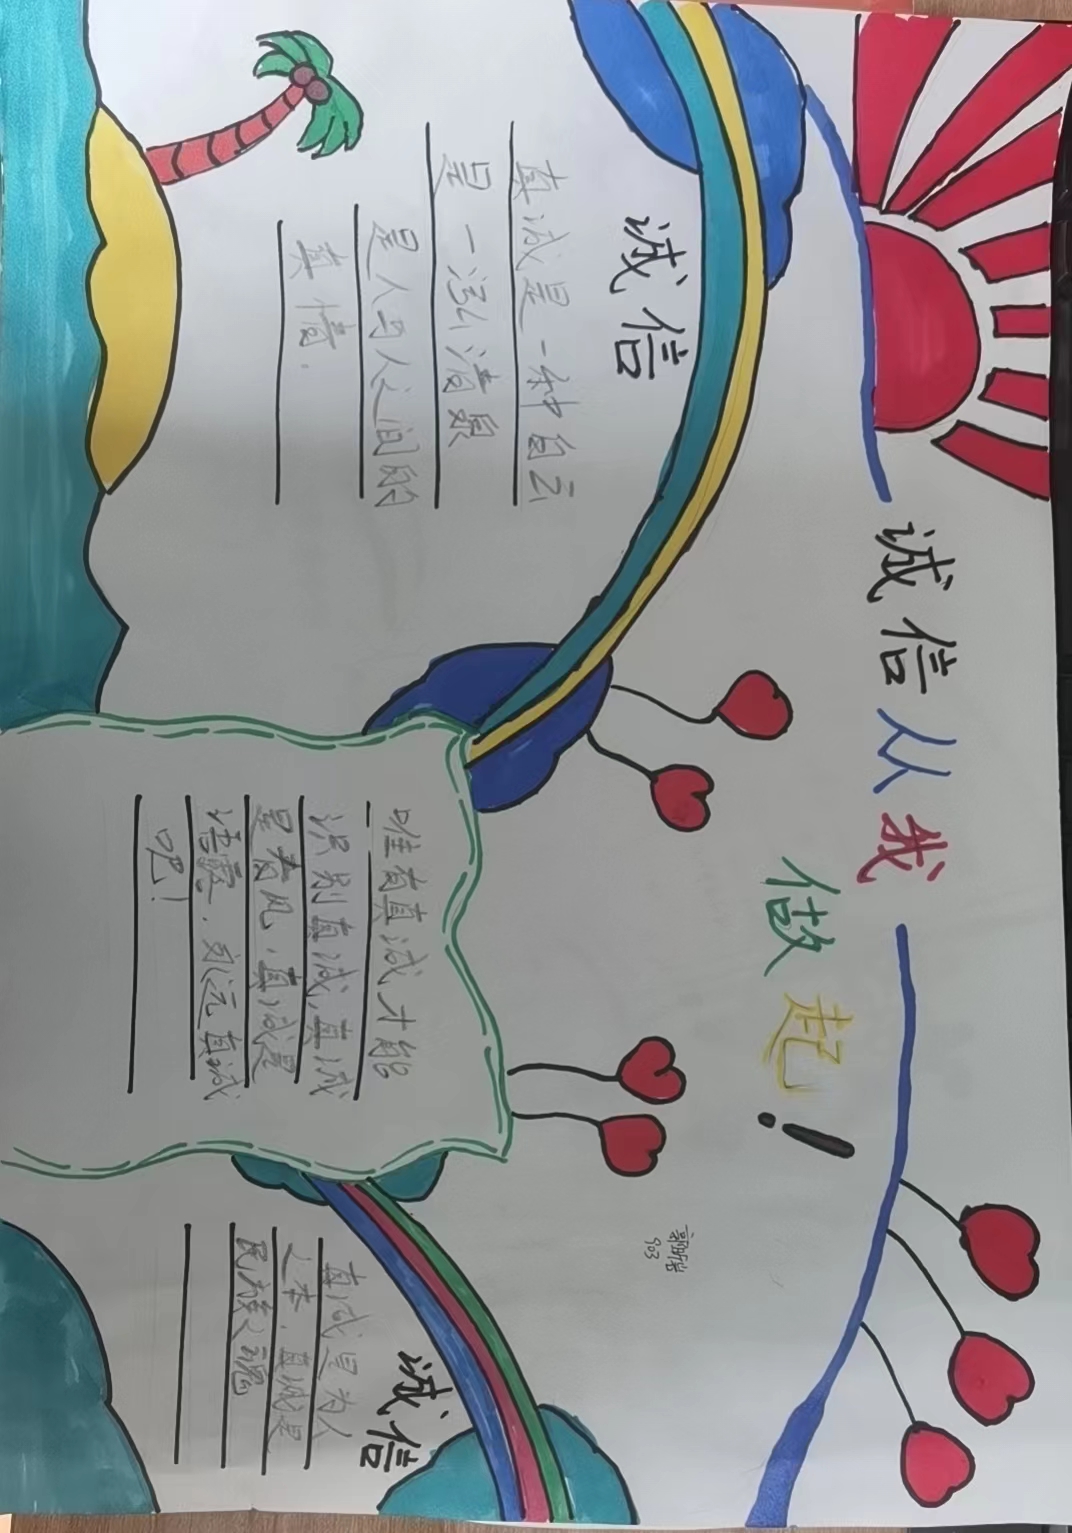 诚信从我
做起！
诚信
真诚是一种自云
是一泓清泉
是人与人之间的
真情.
唯有真诚才能
识别真诚,真诚
是春风,真诚是
语露.永远真诚
吧!
诚信
真诚是为人
之本.真诚是
民族之魂
903